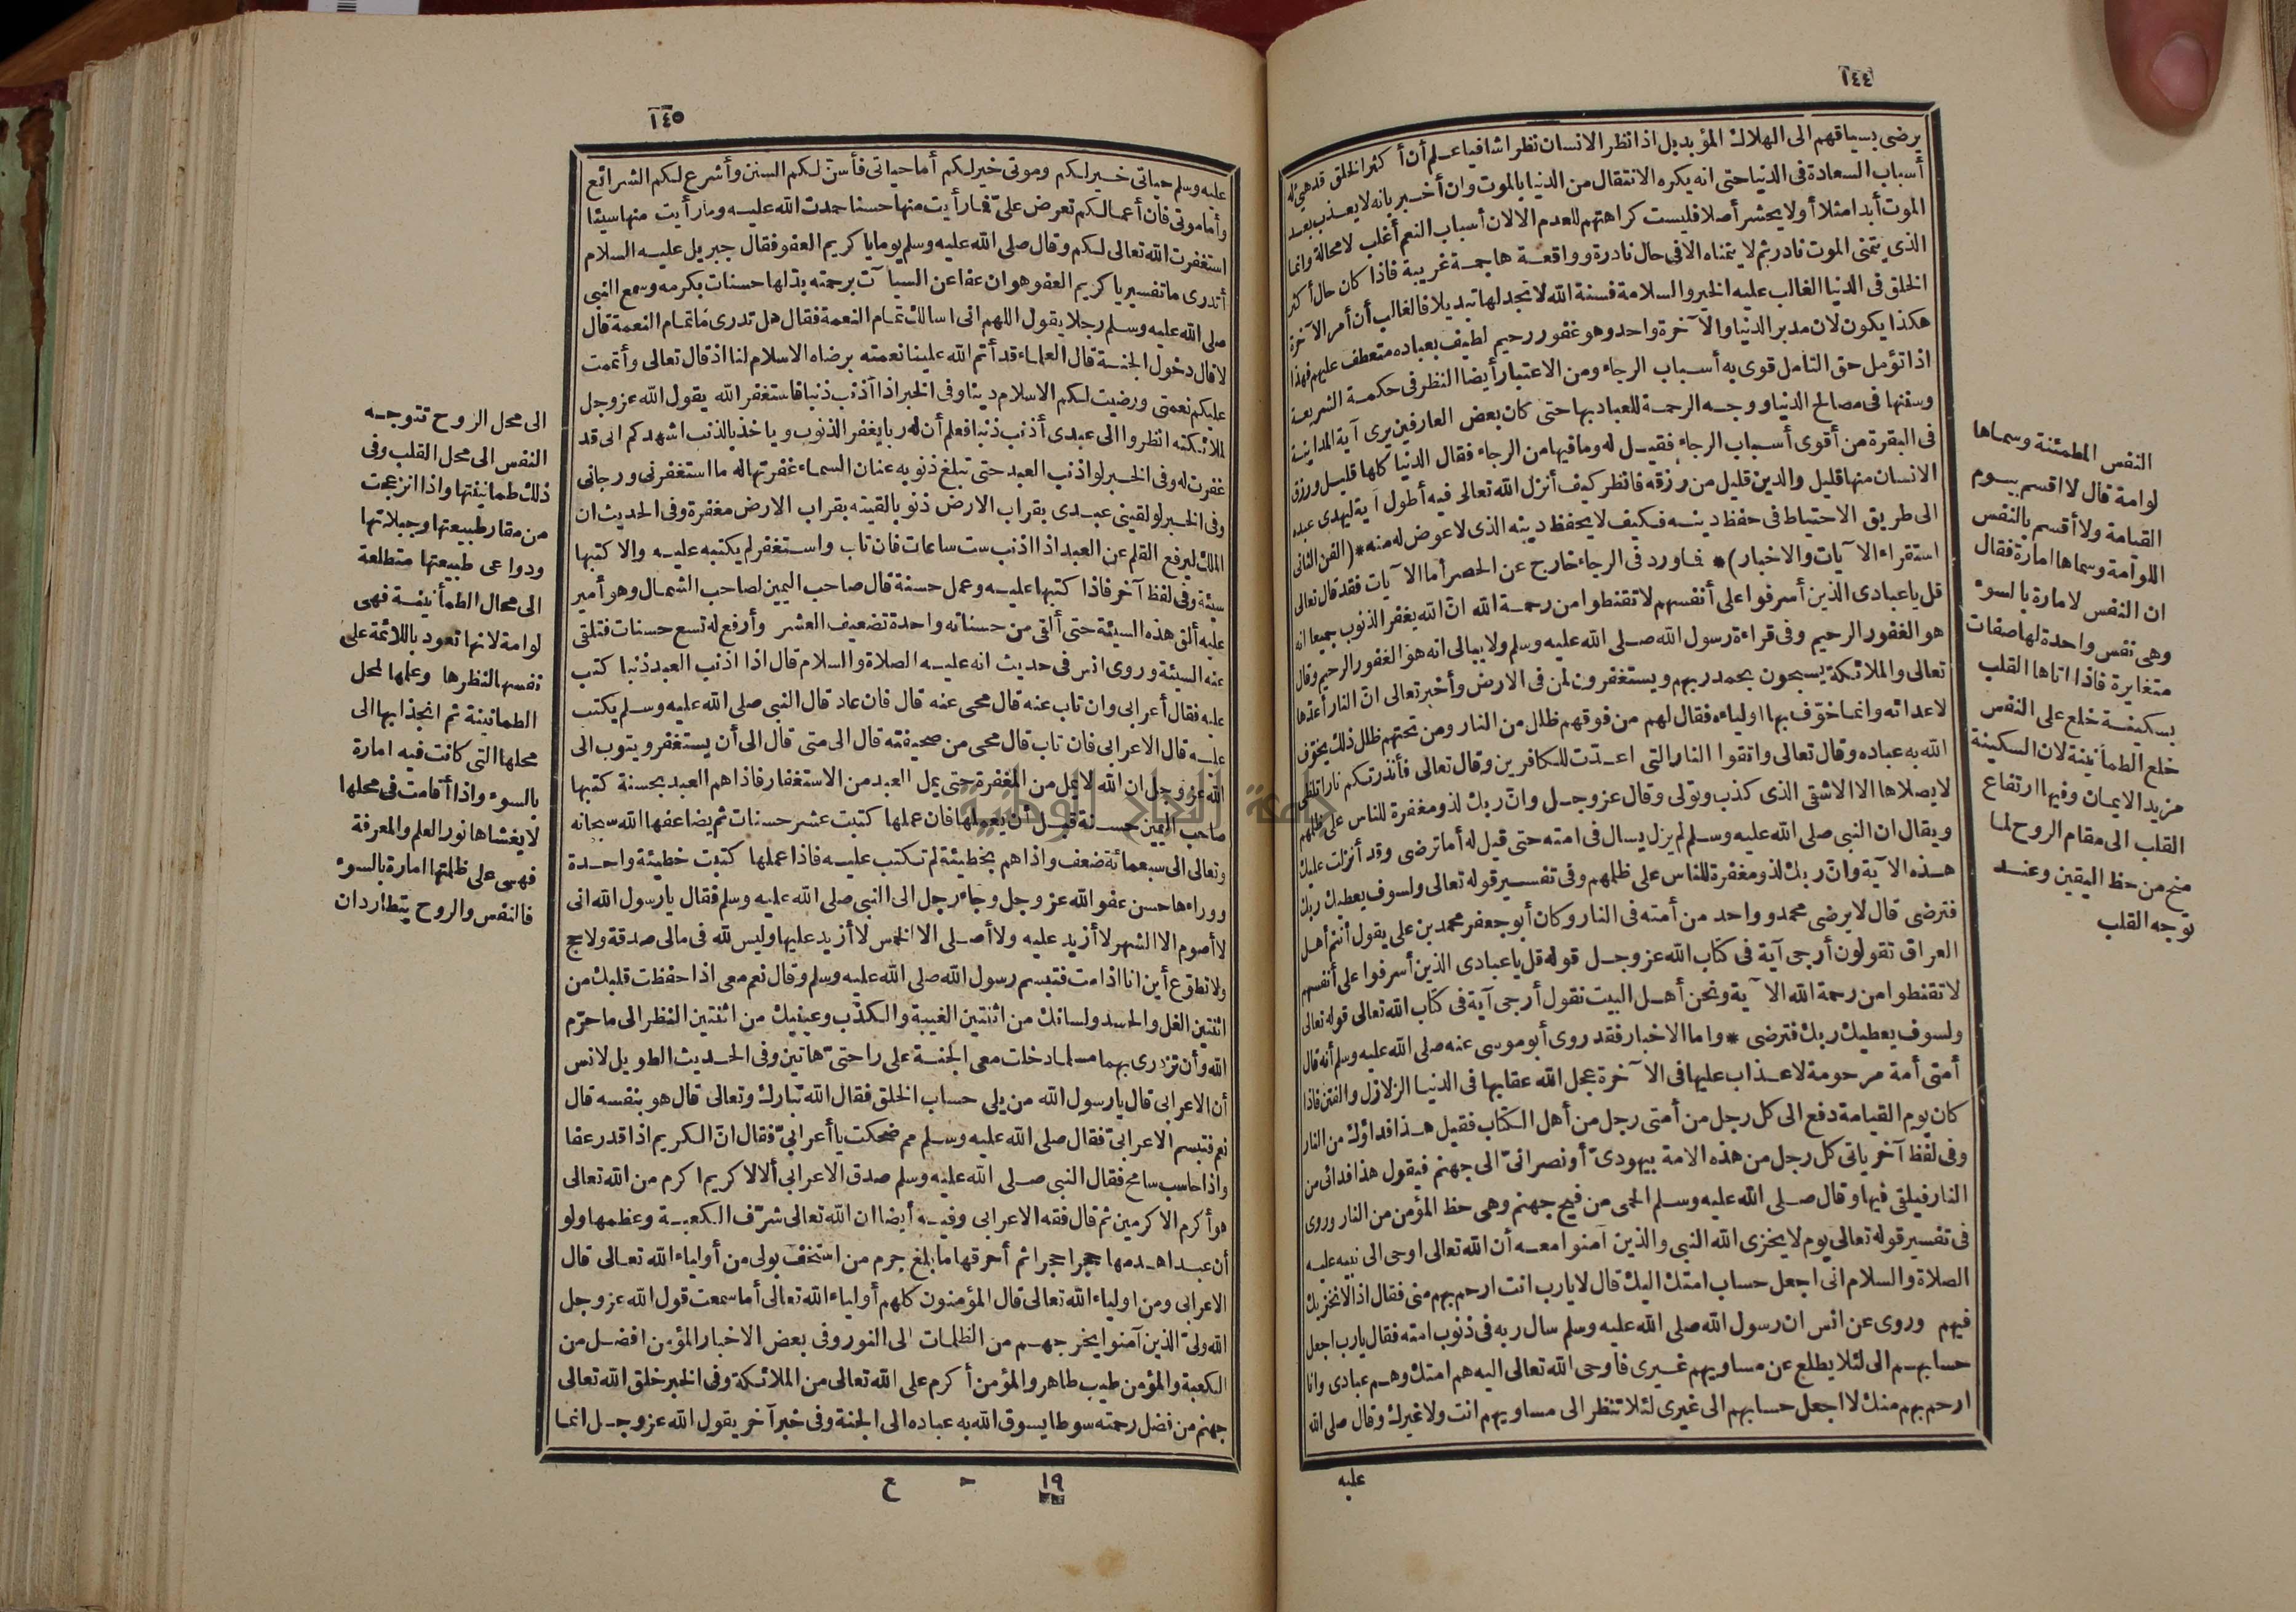 ١٤٤
يرضى بسياقهم الى الهلاك المؤبد بل اذا نظر الانسان نظرا شافيا علم أن أكثر الخلق قد هيئ له
أسباب السعادة فى الدنيا حتى انه يكره الانتقال من الدنيا بالموت وان أخبر بانه لا يعذب بعد
الموت أبدا مثلا أو لا يحشر أصلا فليست كراهتهم للعدم الا لان أسباب النعم أغلب لا محالة وانما
الذى يتمنى الموت نادر ثم لا يتمناه الا فى حال نادرة وواقعة هاجمة غريبة فاذا كان حال أكثر
الخلق فى الدنيا الغالب عليه الخير والسلامة فسنة الله لا تجد لها تبديلا فالغالب أن أمر الآخرة
هكذا يكون لان مدبر الدنيا والآخرة واحد وهو غفور رحيم لطيف بعباده متعطف عليهم فهذا
اذا تؤمل حق التأمل قوى به أسباب الرجاء ومن الاعتبار أيضا النظر فى حكمة الشريعة
وسننها فى مصالح الدنيا ووجه الرحمة للعباد بها حتى كان بعض العارفين يرى آية المداينة
فى البقرة من أقوى أسباب الرجاء فقيل له وما فيها من الرجاء فقال الدنيا كلها قليل ورزق
الانسان منها قليل والدين قليل من رزقه فانظر كيف أنزل الله تعالى فيه أطول آية ليهدى عبده
الى طريق الاحتياط فى حفظ دينه فكيف لا يحفظ دينه الذى لا عوض له منه * (الفن الثانى
استقراء الآيات والاخبار) * فما ورد فى الرجاء خارج عن الحصر أما الآيات فقد قال تعالى
قل يا عبادى الذين أسرفوا على أنفسهم لا تقنطوا من رحمة الله انّ الله يغفر الذنوب جميعا انه
هو الغفور الرحيم وفى قراءة رسول الله صلى الله عليه وسلم ولا يبالى انه هو الغفور الرحيم وقال
تعالى والملائكة يسبحون بحمد ربهم ويستغفرون لمن فى الارض وأخبر تعالى انّ النار أعدّها
لاعدائه وانما خوّف بها اولياءه فقال لهم من فوقهم ظلل من النار ومن تحتهم ظلل ذلك يخوّف
الله به عباده وقال تعالى واتقوا النار التى اعدّت للكافرين وقال تعالى فأنذرتكم نارا تلظى
لا يصلاها الا الاشقى الذى كذب وتولى وقال عز وجل وانّ ربك لذو مغفرة للناس على ظلمهم
ويقال ان النبى صلى الله عليه وسلم لم يزل يسال فى امته حتى قيل له أما ترضى وقد أنزلت عليك
هذه الآية وانّ ربك لذو مغفرة للناس على ظلمهم وفى تفسير قوله تعالى ولسوف يعطيك ربك
فترضى قال لا يرضى محمد وواحد من أمته فى النار وكان أبو جعفر محمد بن على يقول أنتم أهل
العراق تقولون أرجى آية فى كتاب الله عز وجل قوله قل يا عبادى الذين أسرفوا على أنفسهم
لا تقنطوا من رحمة الله الآية ونحن أهل البيت نقول أرجى آية فى كتاب الله تعالى قوله تعالى
ولسوف يعطيك ربك فترضى * واما الاخبار فقد روى أبو موسى عنه صلى الله عليه وسلم أنه قال
أمتى أمة مرحومة لا عذاب عليها فى الآخرة عجل الله عقابها فى الدنيا الزلازل والفتن فاذا
كان يوم القيامة دفع الى كل رجل من أمتى رجل من أهل الكتاب فقيل هذا فداؤك من النار
وفى لفظ آخر ياتى كل رجل من هذه الامة بيهودىّ أو نصرانىّ الى جهنم فيقول هذا فدائى من
النار فيلقى فيها وقال صلى الله عليه وسلم الحمى من فيح جهنم وهى حظ المؤمن من النار وروى
فى تفسير قوله تعالى يوم لا يخزى الله النبى والذين آمنوا معه أن الله تعالى اوحى الى نبيه عليه
الصلاة والسلام انى اجعل حساب امتك اليك قال لا يا رب انت ارحم بهم منى فقال اذا لا نخزيك
فيهم وروى عن انس ان رسول الله صلى الله عليه وسلم سال ربه فى ذنوب امته فقال يا رب اجعل
حسابهم الى لئلا يطلع عن مساويهم غيرى فاوحى الله تعالى اليه هم امتك وهم عبادى وانا
ارحم بهم منك لا اجعل حسابهم الى غيرى لئلا تنظر الى مساويهم انت ولا غيرك وقال صلى الله
عليه
النفس المطمئنة وسماها
لوامة قال لا اقسم بيوم
القيامة ولا أقسم بالنفس
اللوامة وسماها امارة فقال
ان النفس لامارة بالسوء
وهى نفس واحدة لها صفات
متغايرة فاذا اتاها القلب
بسكينة خلع على النفس
خلع الطمأنينة لان السكينة
مزيد الايمان وفيها ارتفاع
القلب الى مقام الروح لما
منح من حظ اليقين وعند
توجه القلب
١٤٥
عليه وسلم حياتى خير لكم وموتى خير لكم أما حياتى فأسنّ لكم السنن وأشرع لكم الشرائع
وأما موتى فان أعمالكم تعرض علىّ فما رأيت منها حسنا حمدت الله عليه وما رأيت منها سيئا
استغفرت الله تعالى لكم وقال صلى الله عليه وسلم يوما يا كريم العفو فقال جبريل عليه السلام
أتدرى ما تفسير يا كريم العفو هو ان عفا عن السيآت برحمته بدّلها حسنات بكرمه وسمع النبى
صلى الله عليه وسلم رجلا يقول اللهم انى اسالك تمام النعمة فقال هل تدرى ما تمام النعمة قال
لا قال دخول الجنة قال العلماء قد أتم الله علينا نعمته برضاه الاسلام لنا اذ قال تعالى وأتممت
عليكم نعمتى ورضيت لكم الاسلام دينا وفى الخبر اذا أذنب ذنبا فاستغفر الله يقول الله عز وجل
لملائكته انظروا الى عبدى أذنب ذنبا فعلم أن له ربا يغفر الذنوب وياخذ بالذنب اشهدكم انى قد
غفرت له وفى الخبر لو اذنب العبد حتى تبلغ ذنوبه عنان السماء غفرتها له ما استغفرنى ورجانى
وفى الخبر لو لقينى عبدى بقراب الارض ذنوبا لقيته بقراب الارض مغفرة وفى الحديث ان
الملك ليرفع القلم عن العبد اذا اذنب ست ساعات فان تاب واستغفر لم يكتبه عليه والا كتبها
سيئة وفى لفظ آخر فاذا كتبها عليه وعمل حسنة قال صاحب اليمين لصاحب الشمال وهو أمير
عليه ألق هذه السيئة حتى ألقى من حسناته واحدة تضعيف العشر وأرفع له تسع حسنات فتلقى
عنه السيئة وروى انس فى حديث انه عليه الصلاة والسلام قال اذا اذنب العبد ذنبا كتب
عليه فقال أعرابى وان تاب عنه قال محى عنه قال فان عاد قال النبى صلى الله عليه وسلم يكتب
عليه قال الاعرابى فان تاب قال محى من صحيفته قال الى متى قال الى أن يستغفر ويتوب الى
الله عز وجل ان الله لا يمل من المغفرة حتى يمل العبد من الاستغفار فاذا هم العبد بحسنة كتبها
صاحب اليمين حسنة قبل أن يعملها فان عملها كتبت عشر حسنات ثم يضاعفها الله سبحانه
وتعالى الى سبعمائة ضعف واذا هم بخطيئة لم تكتب عليه فاذا عملها كتبت خطيئة واحدة
ووراءها حسن عفو الله عز وجل وجاء رجل الى النبى صلى الله عليه وسلم فقال يا رسول الله انى
لا أصوم الا الشهر لا أزيد عليه ولا أصلى الا الخمس لا أزيد عليها وليس لله فى مالى صدقة ولا حج
ولا تطوّع أين انا اذا مت فتبسم رسول الله صلى الله عليه وسلم وقال نعم معى اذا حفظت قلبك من
اثنتين الغل والحسد ولسانك من اثنتين الغيبة والكذب وعينيك من اثنتين النظر الى ما حرّم
الله وأن تزدرى بهما مسلما دخلت معى الجنة على راحتىّ هاتين وفى الحديث الطويل لانس
أن الاعرابى قال يا رسول الله من يلى حساب الخلق فقال الله تبارك وتعالى قال هو بنفسه قال
نعم فتبسم الاعرابىّ فقال صلى الله عليه وسلم مم ضحكت يا أعرابىّ فقال انّ الكريم اذا قدر عفا
واذا حاسب سامح فقال النبى صلى الله عليه وسلم صدق الاعرابى ألا لا كريم اكرم من الله تعالى
هو أكرم الاكرمين ثم قال فقه الاعرابى وفيه أيضا ان الله تعالى شرّف الكعبة وعظمها ولو
أن عبدا هدمها حجرا حجرا ثم أحرقها ما بلغ جرم من استخف بولى من أولياء الله تعالى قال
الاعرابى ومن اولياء الله تعالى قال المؤمنون كلهم أولياء الله تعالى أما سمعت قول الله عز وجل
الله ولىّ الذين آمنوا يخرجهم من الظلمات الى النور وفى بعض الاخبار المؤمن افضل من
الكعبة والمؤمن طيب طاهر والمؤمن أكرم على الله تعالى من الملائكة وفى الخبر خلق الله تعالى
جهنم من فضل رحمته سوطا يسوق الله به عباده الى الجنة وفى خبر آخر يقول الله عز وجل انما
١٩ ح ع
الى محل الروح تتوجه
النفس الى محل القلب وفى
ذلك طمانينتها واذا انزعجت
من مقار طبيعتها وجبلاتها
ودواعى طبيعتها متطلعة
الى محال الطمأنينة فهى
لوامة لانها تعود باللائمة على
نفسها لنظرها وعلمها لمحل
الطمانينة ثم انجذابها الى
محلها التى كانت فيه امارة
بالسوء واذا أقامت فى محلها
لا يغشاها نور العلم والمعرفة
فهى على ظلمتها امارة بالسوء
فالنفس والروح يتطاردان